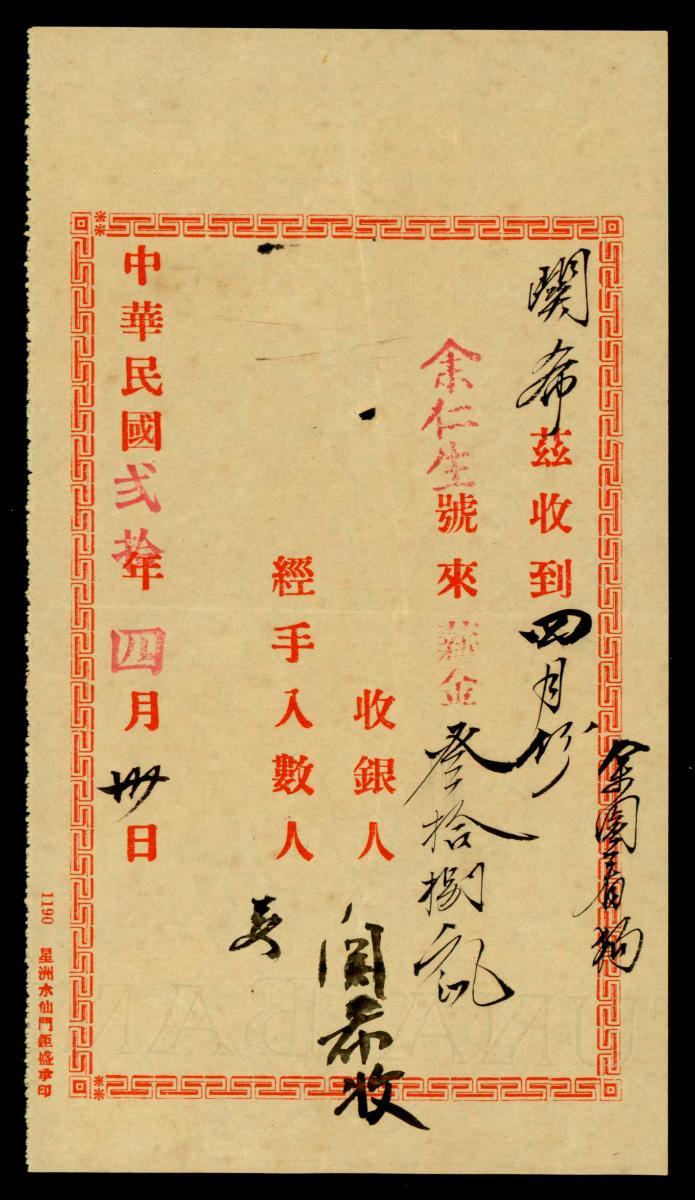 余園看狗
關希茲收到四月份
余仁生號來薪金叁拾捌元
收銀人 關希收
經手入數人
中華民國弍拾年四月卅日
1190 星洲水仙門鉅盛承印